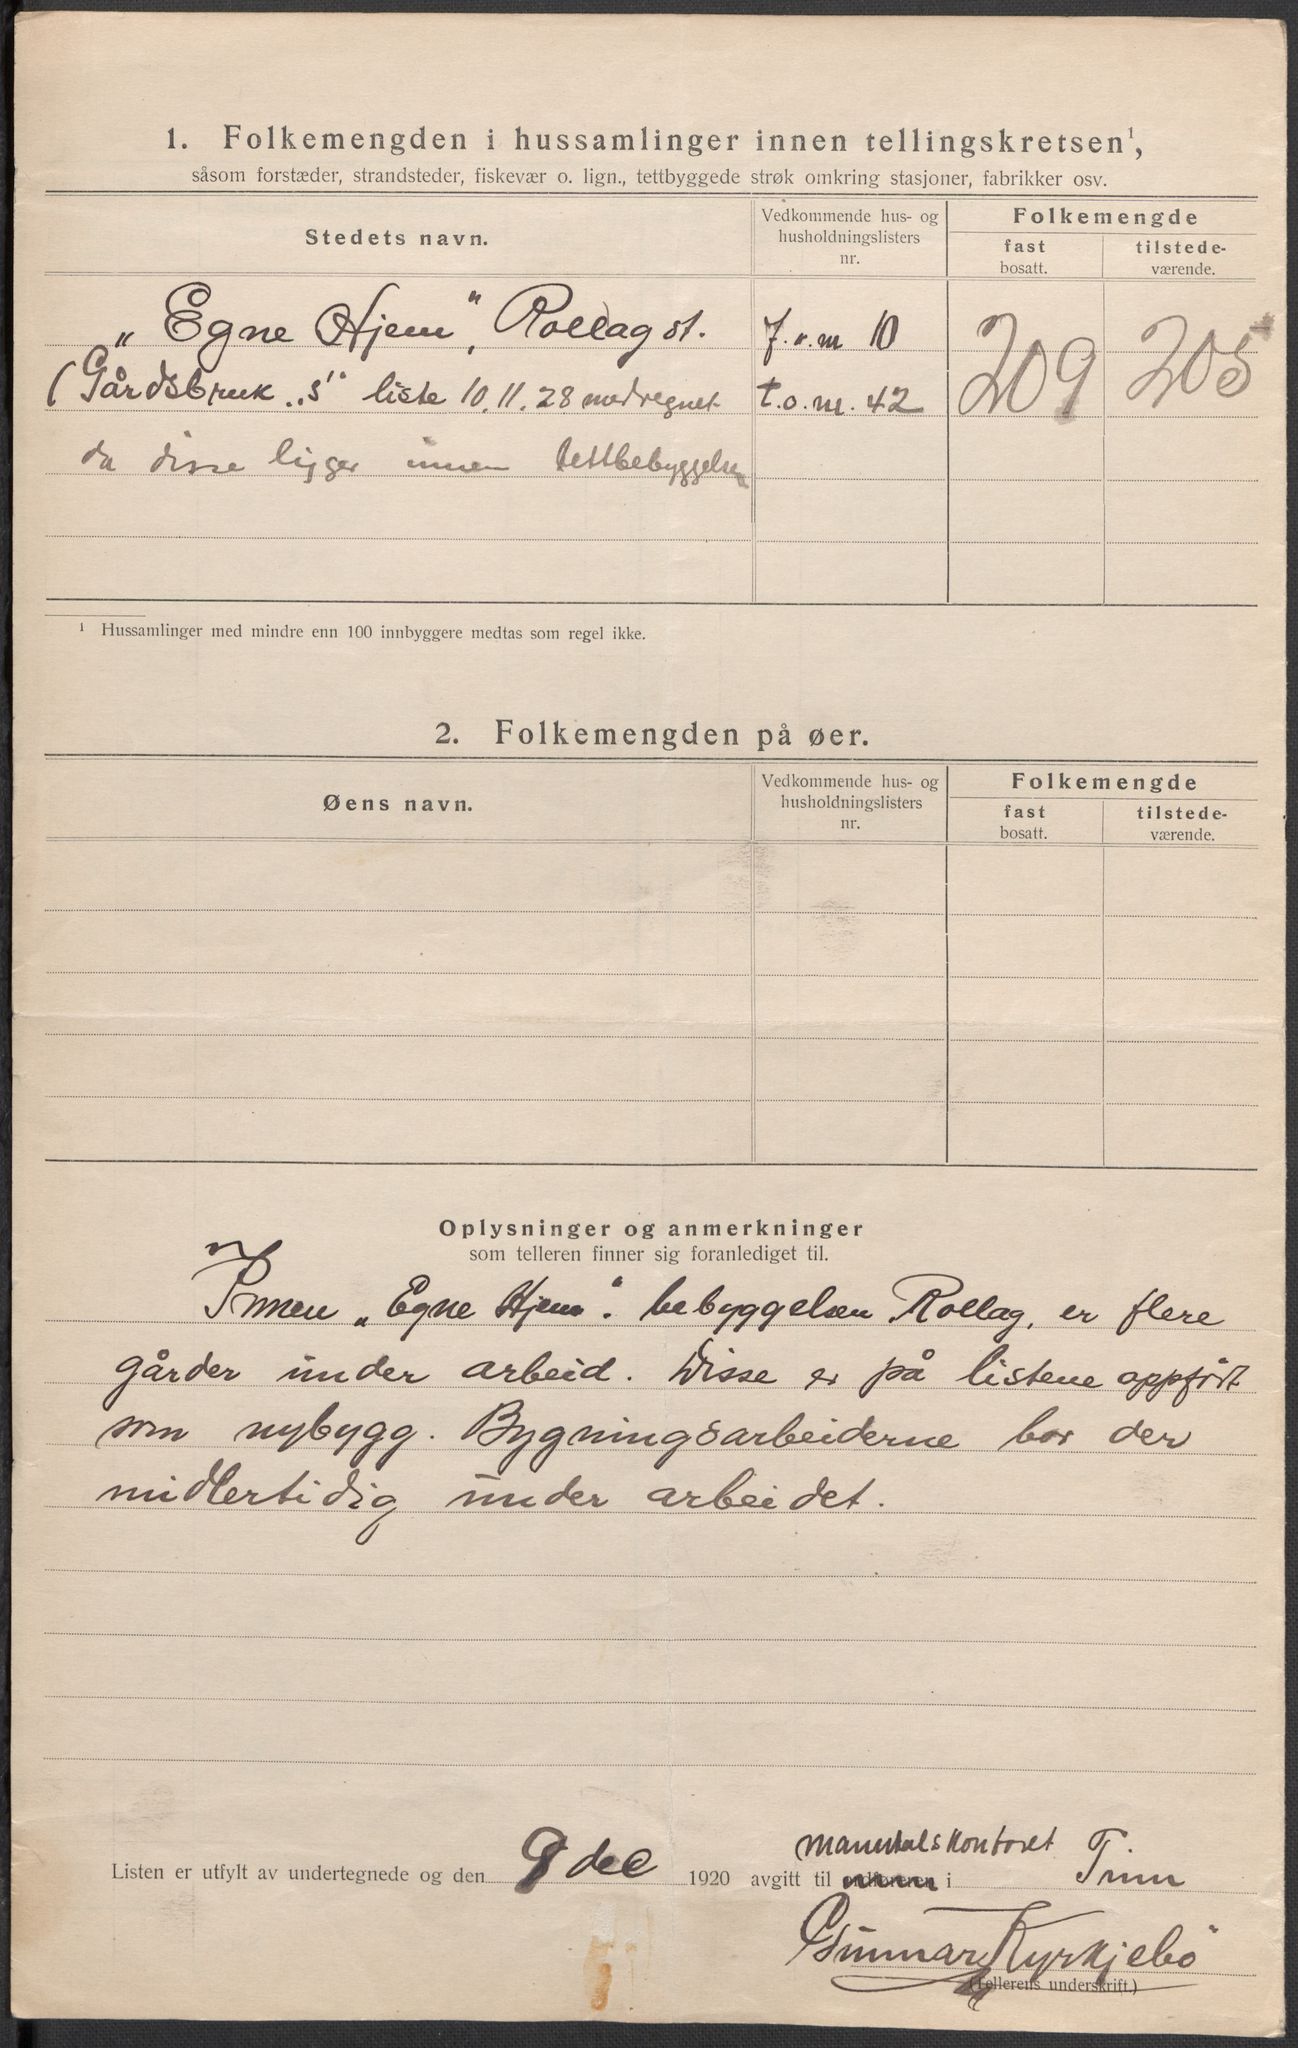 1. Folkemengden i hussamlinger innen tellingskretsen¹,
såsom forstæder, strandsteder, fiskevær o. lign., tettbyggede strøk omkring stasjoner, fabrikker osv.
Stedets navn.
Vedkommende hus- og husholdningslisters nr.
Folkemengde
fast bosatt.
tilstede-værende.
„Egne Hjem", Rollag st. f.o.m 10
(Gårdsbruk „s" liste 10.11.28 medregnet t.o.m. 42 209 205
da disse ligger innen tettbebyggelsen
¹ Hussamlinger med mindre enn 100 innbyggere medtas som regel ikke.
2. Folkemengden på øer.
Øens navn.
Vedkommende hus- og husholdningslisters nr.
Folkemengde
fast bosatt.
tilstede-værende.
Oplysninger og anmerkninger
som telleren finner sig foranlediget til.
Innen „Egne Hjem". bebyggelsen Rollag, er flere
gårder under arbeid. Disse er på listene oppført
som nybygg. Bygningsarbeiderne bor der
midlertidig under arbeidet.
manntalskontoret
Listen er utfylt av undertegnede og den 9 dec 1920 avgitt til i Tinn
Gunnar Kyrkjebö
(Tellerens underskrift.)